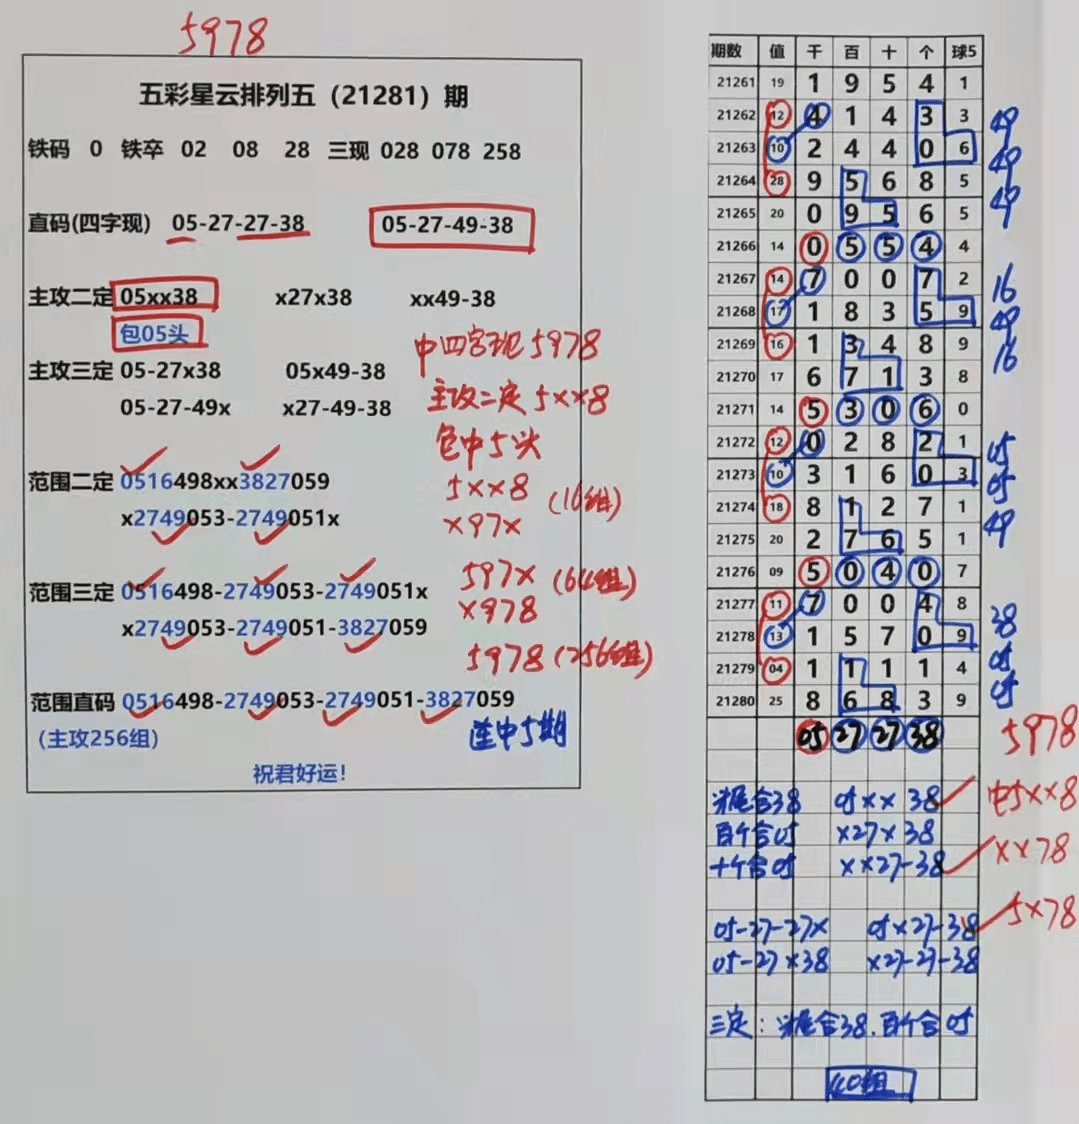 5978
五彩星云排列五（21281）期
铁码 0 铁卒 02 08 28 三现 028 078 258
直码(四字现) 05-27-27-38 05-27-49-38
主攻二定 05xx38 x27x38 xx49-38
包05头
中四字现5978
主攻三定 05-27x38 05x49-38
主攻二定5xx8
05-27-49x x27-49-38
包中5头
范围二定 0516498xx3827059
5xx8 (16组)
x2749053-2749051x
x97x
范围三定 0516498-2749053-2749051x
597x (64组)
x2749053-2749051-3827059
x978
5978 (256组)
范围直码 0516498-2749053-2749051-3827059
(主攻256组)
连中5期
祝君好运!
期数 值 千 百 十 个 球5
21261 19 1 9 5 4 1
21262 12 4 1 4 3 3 49
21263 10 2 4 4 0 6 49
21264 28 9 5 6 8 5 49
21265 20 0 9 5 6 5
21266 14 0 5 5 4 4
21267 14 7 0 0 7 2 16
21268 17 1 8 3 5 9 49
21269 16 1 3 4 8 9 16
21270 17 6 7 1 3 8
21271 14 5 3 0 6 0
21272 12 0 2 8 2 1 05
21273 10 3 1 6 0 3 05
21274 18 8 1 2 7 1 49
21275 20 2 7 6 5 1
21276 09 5 0 4 0 7
21277 11 7 0 0 4 8 38
21278 13 1 5 7 0 9 05
21279 04 1 1 1 1 4 05
21280 25 8 6 8 3 9
05 27 27 38 5978
头尾合38 05xx 38 中5xx8
百个合05 x27x 38
十个合05 xx27-38 xx78
05-27-27x 05x27-38 5x78
05-27x38 x27-27-38
三定：头尾合38.百个合05
40组